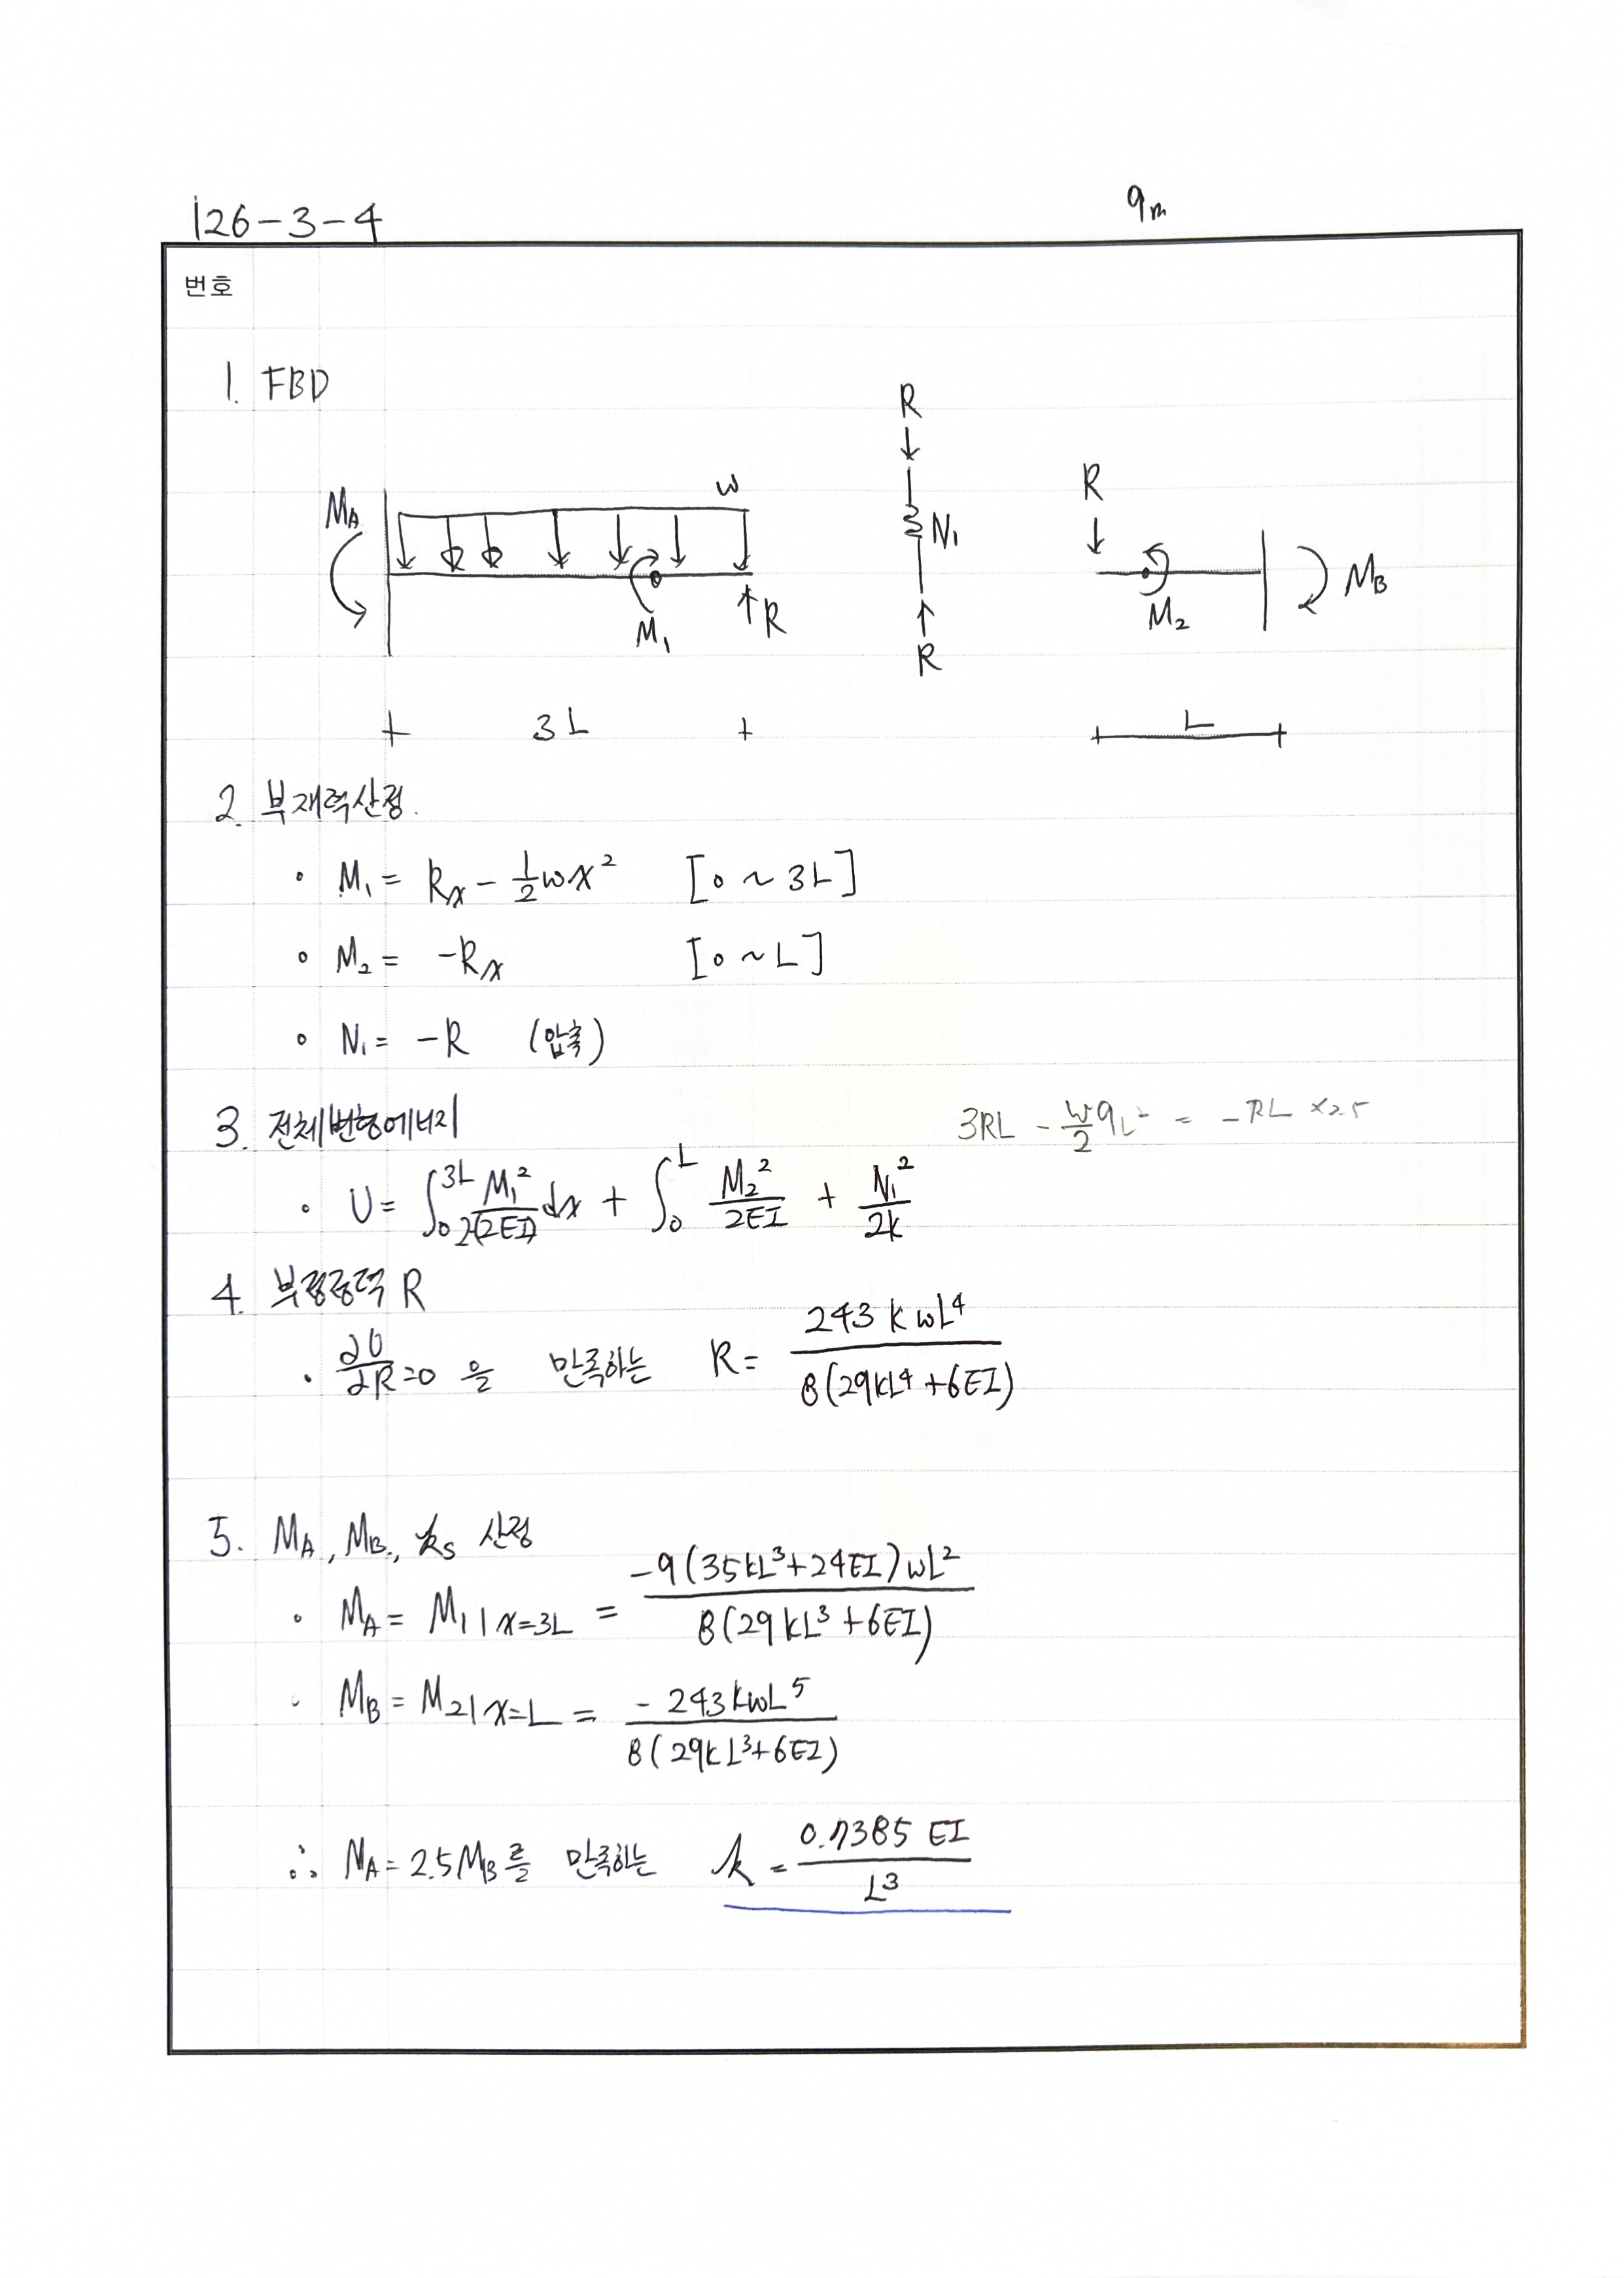 126-3-4
9m
번호
1. FBD
R
w R
MA N1 MB
M1 R M2
R
3L L
2. 부재력산정.
• M1 = Rx - 1/2 wx² [0 ~ 3L]
• M2 = -Rx [0 ~ L]
• N1 = -R (압축)
3. 전체변형에너지 3RL - w/2 9L² = -RL ×2.5
• U = ∫₀^3L M1²/2(2EI) dx + ∫₀^L M2²/2EI + N1²/2k
4. 부정정력 R
• ∂U/∂R=0 을 만족하는 R = 243 k wL⁴ / 8(29kL⁴+6EI)
5. MA, MB, ks 산정
• MA = M1|x=3L = -9(35kL³+24EI)wL² / 8(29kL³+6EI)
• MB = M2|x=L = -243kwL⁵ / 8(29kL³+6EI)
∴ MA = 2.5MB를 만족하는 k = 0.7385 EI / L³